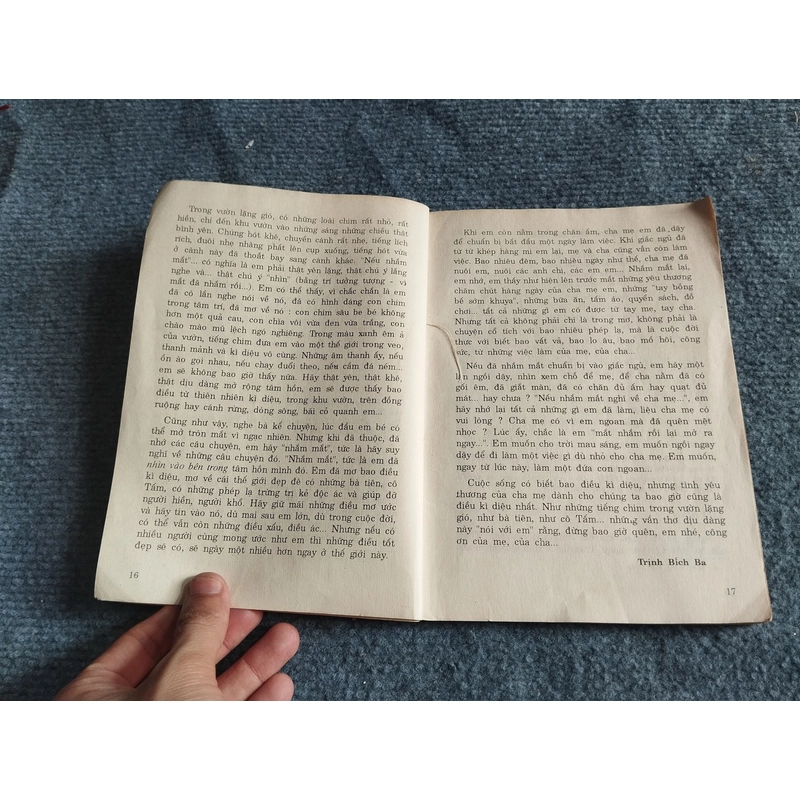 Trong vườn lặng gió, có những loài chim rất nhỏ, rất
hiền, chỉ đến khu vườn vào những sáng những chiều thật
bình yên. Chúng hót khẽ, chuyền cành rất nhẹ, tiếng lích
rích, đuôi nhẹ nhàng phất lên cụp xuống, tiếng hót vừa
ở cành này đã thoắt bay sang cành khác. "Nếu nhắm
mắt"... có nghĩa là em phải thật yên lặng, thật chú ý lắng
nghe và... thật chú ý "nhìn" (bằng trí tưởng tượng - vì
mắt đã nhắm rồi...). Em có thể thấy, vì chắc chắn là em
đã có lần nghe nói về nó, đã có hình dáng con chim
trong tâm trí, đã mơ về nó : con chim sâu be bé không
hơn một quả cau, con chìa vôi vừa đen vừa trắng, con
chào mào mũ lệch ngó nghiêng. Trong màu xanh êm ả
của vườn, tiếng chim đưa em vào một thế giới trong veo,
thanh mảnh và kì diệu vô cùng. Những âm thanh ấy, nếu
ồn ào gọi nhau, nếu chạy đuổi theo, nếu cầm đá ném...
em sẽ không bao giờ thấy nữa. Hãy thật yên, thật khẽ,
thật dịu dàng mở rộng tâm hồn, em sẽ được thấy bao
điều từ thiên nhiên kì diệu, trong khu vườn, trên đồng
ruộng hay cánh rừng, dòng sông, bãi cỏ quanh em...
Cũng như vậy, nghe bà kể chuyện, lúc đầu em bé có
thể mở tròn mắt vì ngạc nhiên. Nhưng khi đã thuộc, đã
nhớ các câu chuyện, em hãy "nhắm mắt", tức là hãy suy
nghĩ về những câu chuyện đó. "Nhắm mắt", tức là em đã
nhìn vào bên trong tâm hồn mình đó. Em đã mơ bao điều
kì diệu, mơ về cái thế giới đẹp đẽ có những bà tiên, cô
Tấm, có những phép lạ trừng trị kẻ độc ác và giúp đỡ
người hiền, người khổ. Hãy giữ mãi những điều mơ ước
và hãy tin vào nó, dù mai sau em lớn, dù trong cuộc đời,
có thể vẫn còn những điều xấu, điều ác... Nhưng nếu có
nhiều người cùng mong ước như em thì những điều tốt
đẹp sẽ có, sẽ ngày một nhiều hơn ngay ở thế giới này.
16
Khi em còn nằm trong chăn ấm, cha mẹ em đã dậy
để chuẩn bị bắt đầu một ngày làm việc. Khi giấc ngủ đã
từ từ khép hàng mi em lại, mẹ và cha cũng vẫn còn làm
việc. Bao nhiêu đêm, bao nhiêu ngày như thế, cha mẹ đã
nuôi em, nuôi các anh chị, các em em... Nhắm mắt lại,
em nhớ, em thấy như hiện lên trước mắt những yêu thương
chăm chút hàng ngày của cha mẹ em, những "tay bồng
bế sớm khuya", những bữa ăn, tấm áo, quyển sách, đồ
chơi... tất cả những gì em có được từ tay mẹ, tay cha.
Nhưng tất cả không phải chỉ là trong mơ, không phải là
chuyện cổ tích với bao nhiêu phép lạ, mà là cuộc đời
thực với biết bao vất vả, bao lo âu, bao mồ hôi, công
sức, từ những việc làm của mẹ, của cha...
Nếu đã nhắm mắt chuẩn bị vào giấc ngủ, em hãy một
lần ngồi dậy, nhìn xem chỗ để mẹ, để cha nằm đã có
gối êm, đã giặt màn, đã có chăn đủ ấm hay quạt đủ
mát... hay chưa ? "Nếu nhắm mắt nghĩ về cha mẹ...", em
hãy nhớ lại tất cả những gì em đã làm, liệu cha mẹ có
vui lòng ? Cha mẹ có vì em ngoan mà đã quên mệt
nhọc ? Lúc ấy, chắc là em "mắt nhắm rồi lại mở ra
ngay...". Em muốn cho trời mau sáng, em muốn ngồi ngay
dậy để đi làm một việc gì dù nhỏ cho cha mẹ. Em muốn,
ngay từ lúc này, làm một đứa con ngoan...
Cuộc sống có biết bao điều kì diệu, nhưng tình yêu
thương của cha mẹ dành cho chúng ta bao giờ cũng là
điều kì diệu nhất. Như những tiếng chim trong vườn lặng
gió, như bà tiên, như cô Tấm... những vần thơ dịu dàng
này "nói với em" rằng, đừng bao giờ quên, em nhé, công
ơn của mẹ, của cha...
Trịnh Bích Ba
17